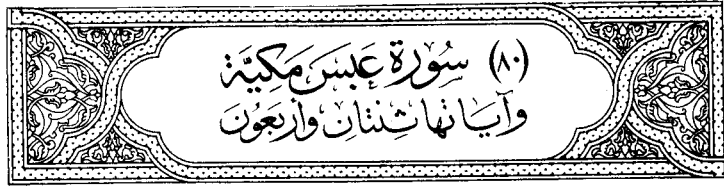 (٨٠) سُورَة عَبَسَ مَكِيَّة
وَآيَاتُهَا ثِنْتَانِ وَأَرْبَعُون